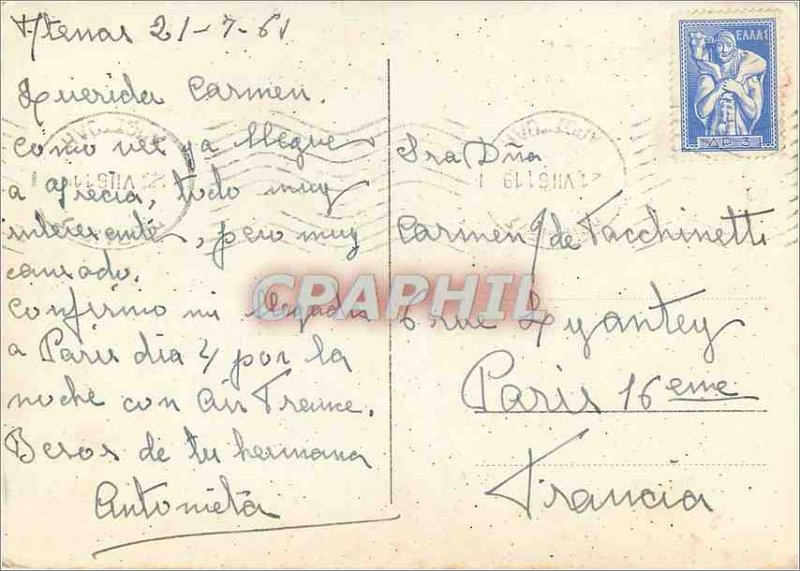 Atenas 21-7-61
Querida Carmen.
como ves ya llegue
a Grecia, todo muy
interesante, pero muy
cansado.
Confirmo mi llegada
a Paris dia 4 por la
noche con Air France.
Besos de tu hermana
Antonieta
ΕΛΛΑΣ
ΔΡ 3
Sra Dña
Carmen G de Facchinetti
6 rue
Paris 16eme
Francia
CPAPHIL